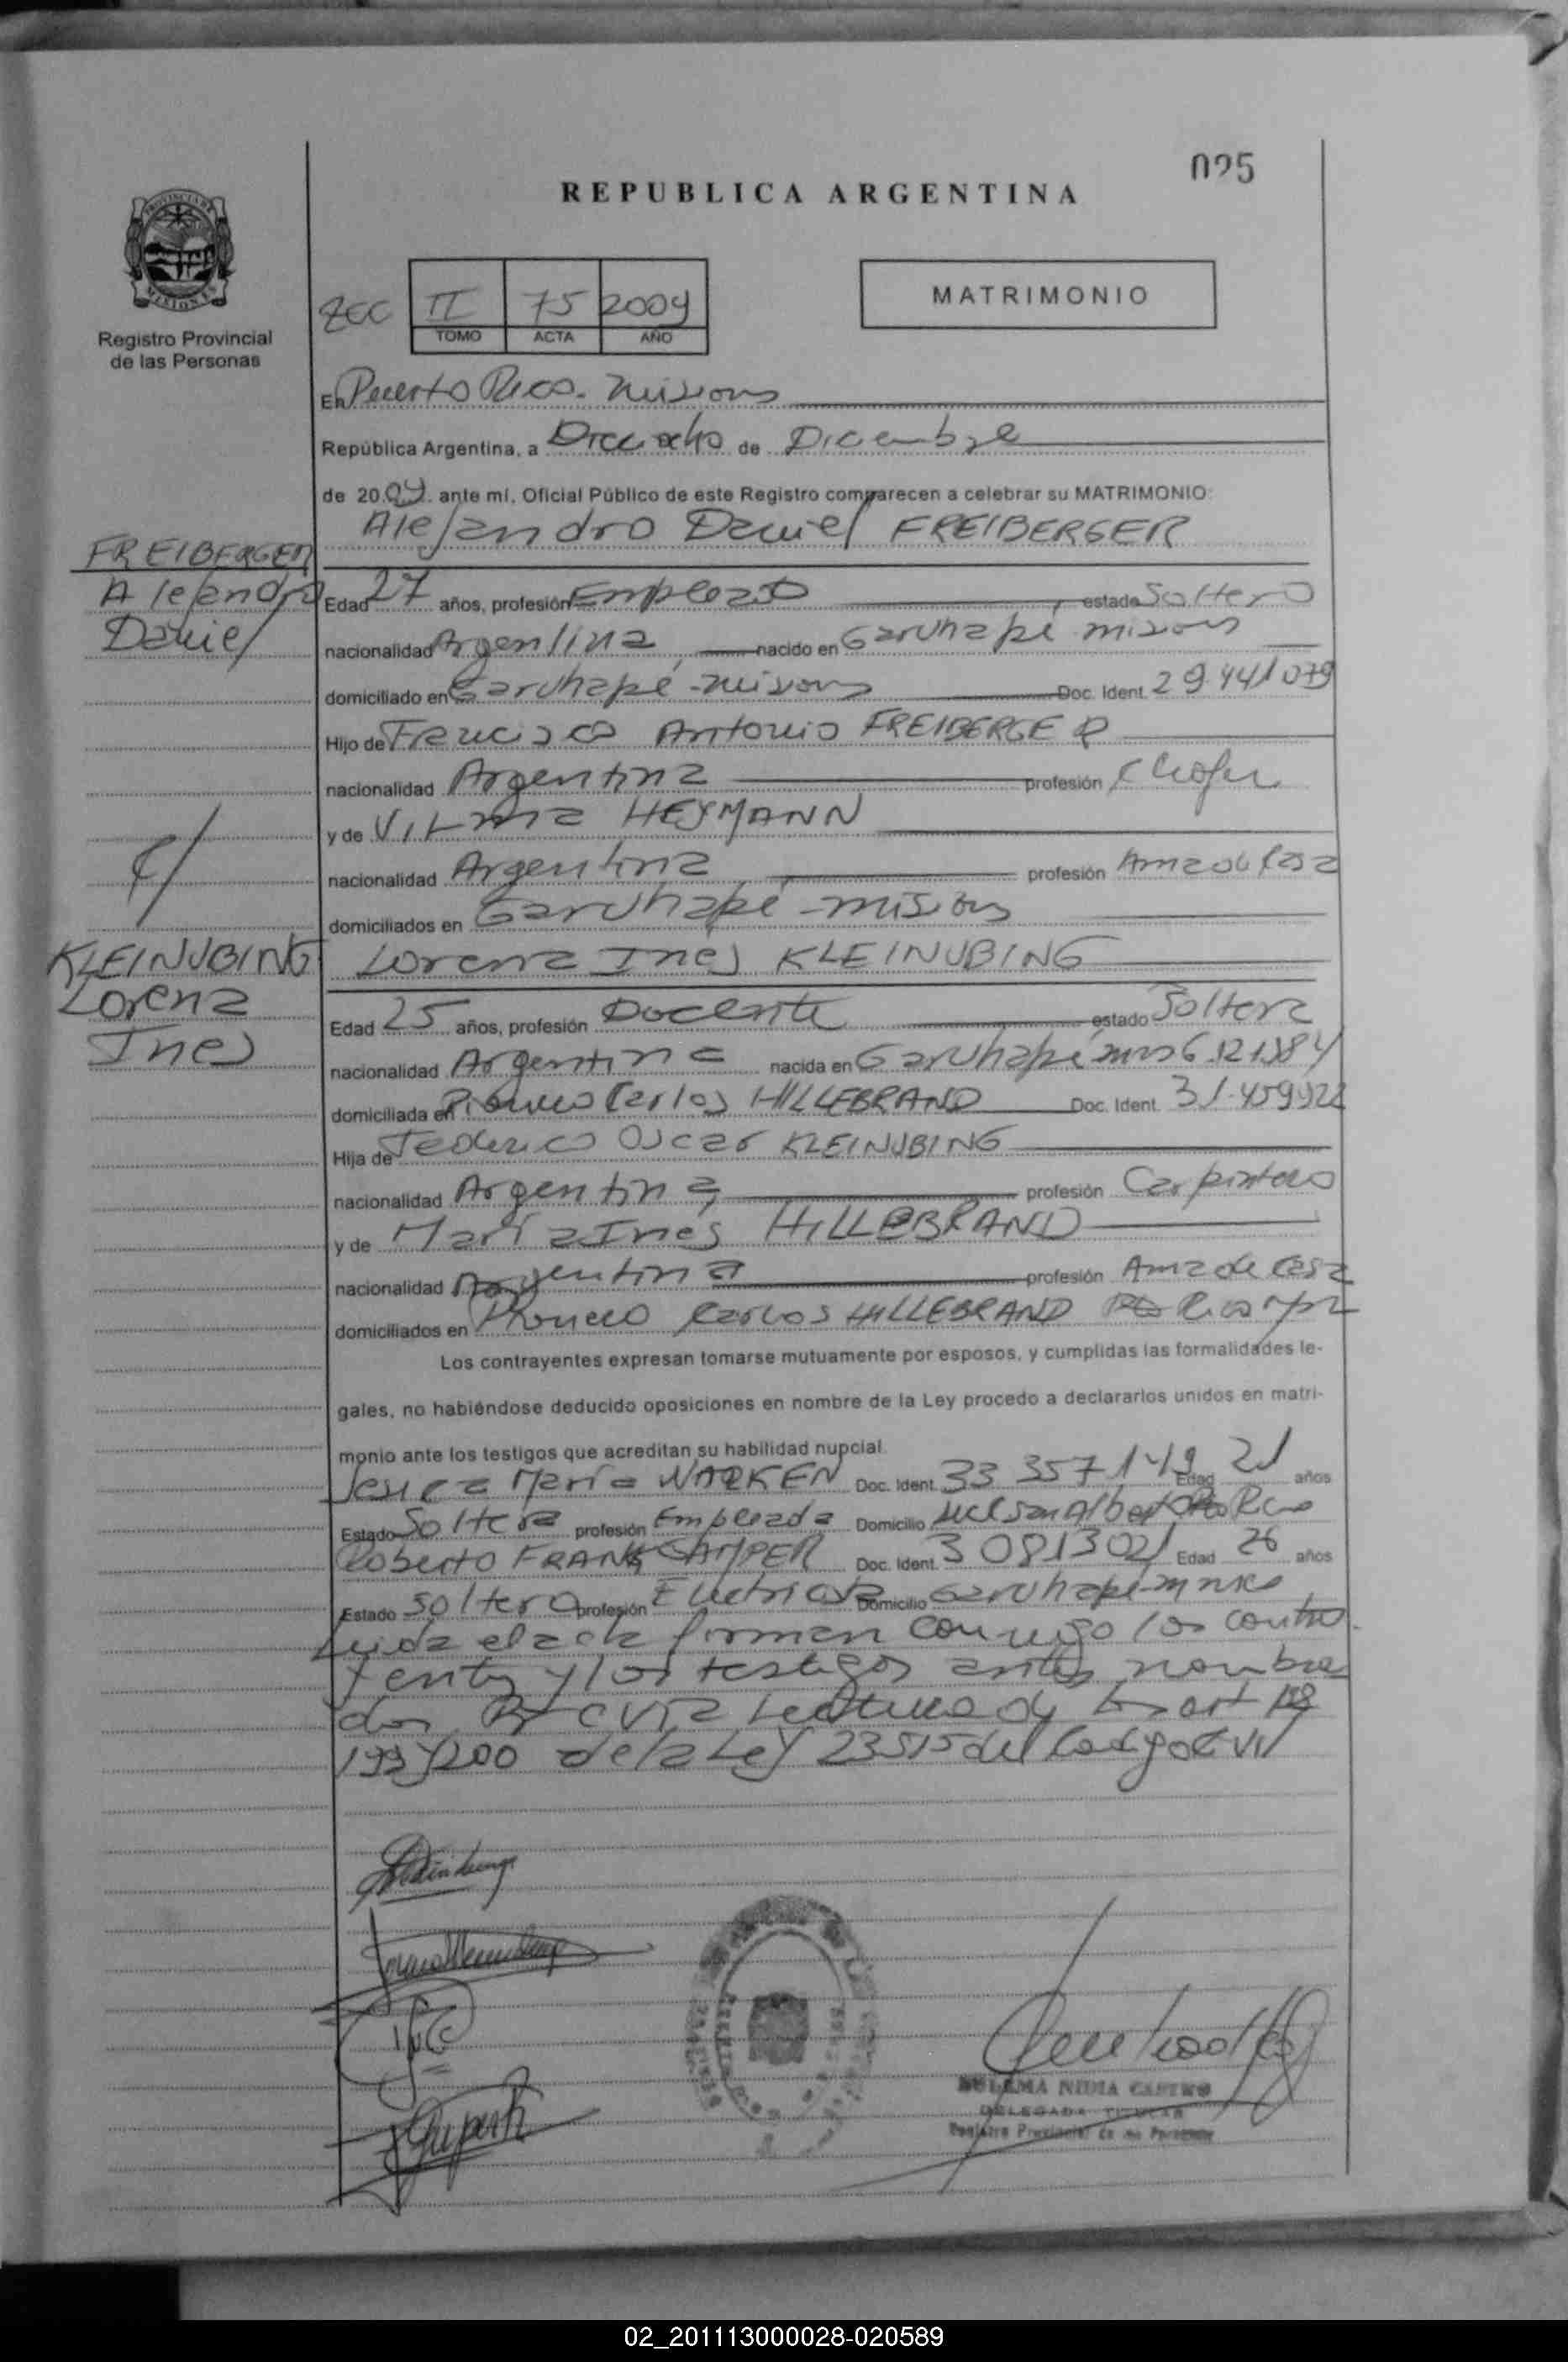 025
REPUBLICA ARGENTINA
PROVINCIA DE
MISIONES
Registro Provincial
de las Personas
II 75 2009
TOMO ACTA AÑO
MATRIMONIO
En Puerto Rico. Misiones
República Argentina, a Dieciocho de Diciembre
de 2009. ante mí, Oficial Público de este Registro comparecen a celebrar su MATRIMONIO:
Alejandro Daniel FREIBERGER
FREIBERGER
Alejandro
Daniel
Edad 27 años, profesión Empleado estado Soltero
nacionalidad Argentina nacido en Garuhapé misiones
domiciliado en Garuhapé - misiones Doc. Ident. 29.441079
Hijo de Francisco Antonio FREIBERGER
nacionalidad Argentina profesión chofer
y de Vilma HEYMANN
nacionalidad Argentina profesión Ama de Casa
domiciliados en Garuhapé - misiones
c/
KLEINUBING
Lorena
Ines
Lorena Ines KLEINUBING
Edad 25 años, profesión Docente estado Soltera
nacionalidad Argentina nacida en Garuhapé
domiciliada en Pionero Carlos HILLEBRAND Doc. Ident. 31.459922
Hija de Federico Oscar KLEINUBING
nacionalidad Argentina profesión Carpintero
y de María Inés HILLEBRAND
nacionalidad Argentina profesión Ama de Casa
domiciliados en Pionero Carlos HILLEBRAND Pto Rico
Los contrayentes expresan tomarse mutuamente por esposos, y cumplidas las formalidades le-
gales, no habiéndose deducido oposiciones en nombre de la Ley procedo a declararlos unidos en matri-
monio ante los testigos que acreditan su habilidad nupcial.
Jesica María WARKEN Doc. Ident. 33 357 149 Edad 21 años
Estado Soltera profesión Empleada Domicilio San Alberto Pto Rico
Roberto FRANK Doc. Ident. 30813021 Edad 26 años
Estado Soltero profesión Electricista Domicilio Garuhapé
Leida el acta firman conmigo los contra
yentes y los testigos antes nombra
dos Previa Lectura de los art 198
199 y 200 de la Ley 23515 del Codigo Civil
SULEMA NIDIA CASTRO
DELEGADA TITULAR
Registro Provincial de las Personas
02_201113000028-020589